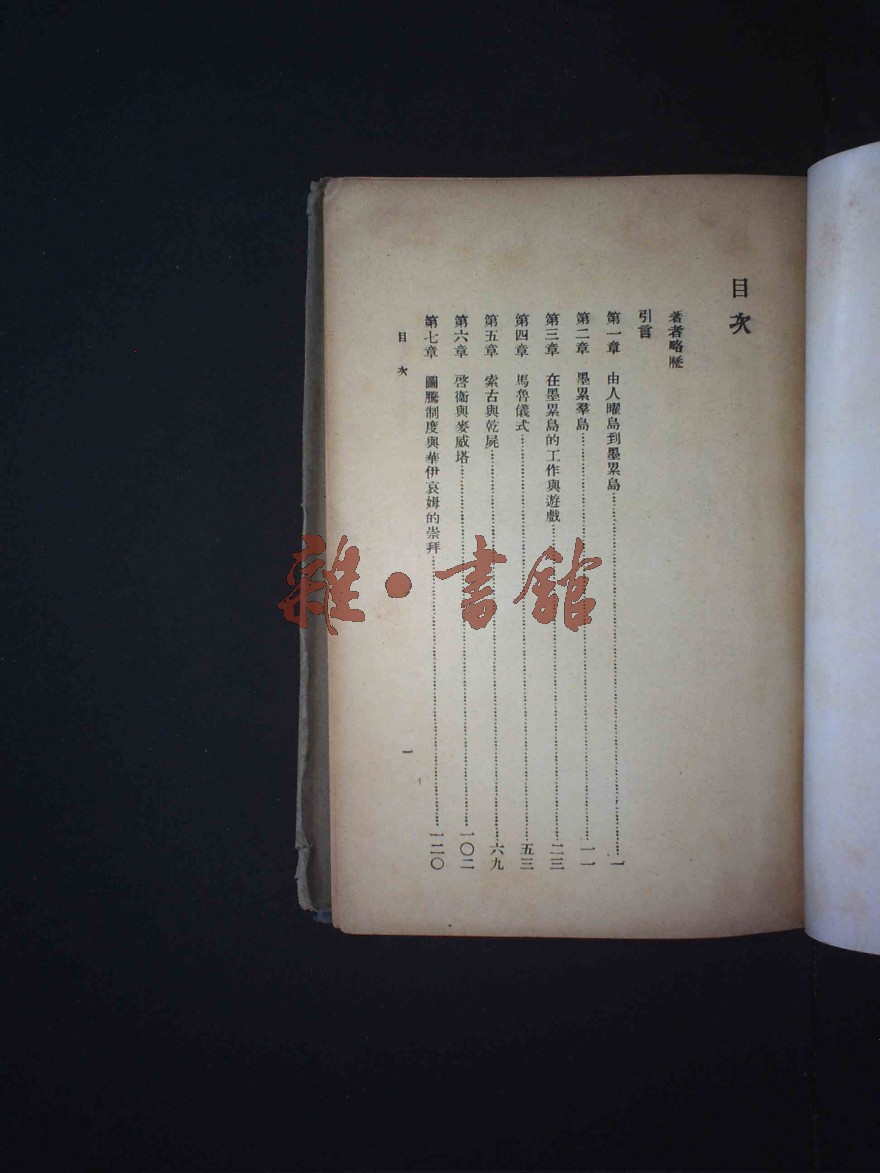 目次
著者略歷
引言
第一章 由人曜島到墨累島……一
第二章 墨累羣島……一一
第三章 在墨累島的工作與遊戲……二三
第四章 馬魯儀式……五三
第五章 索古與乾屍……六九
第六章 啓衞與麥威塔……一〇二
第七章 圖騰制度與華伊哀姆的崇拜……一二〇
目次 一
雜·書館